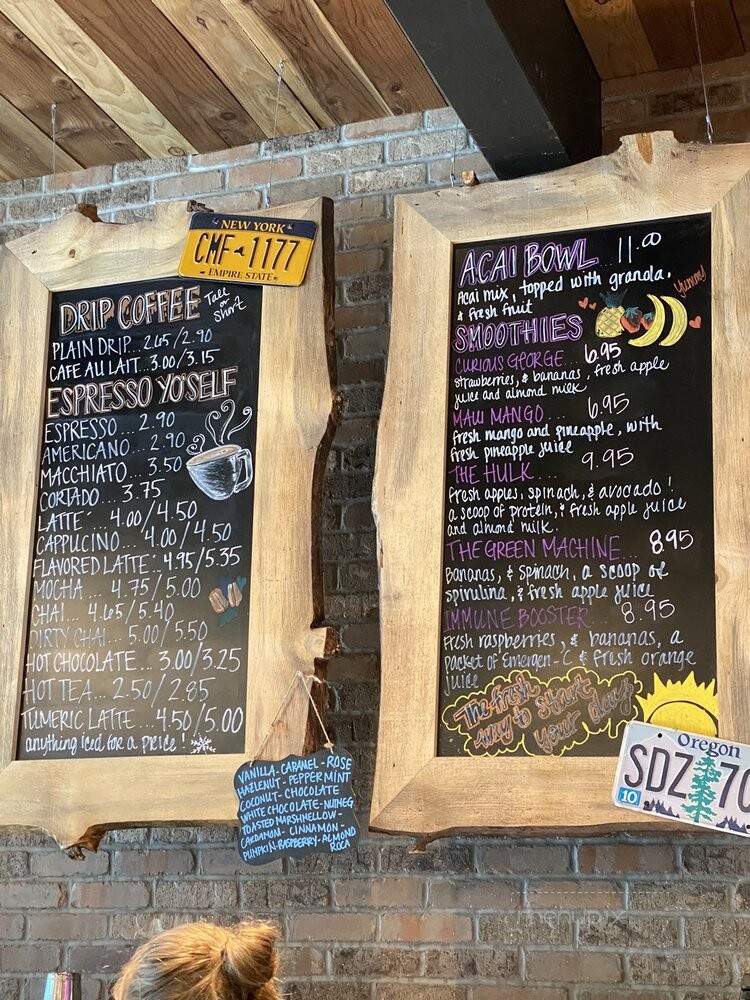 NEW YORK
CMF-1177
EMPIRE STATE
DRIP COFFEE Tall or Short
PLAIN DRIP... 2.65/2.90
CAFE AU LAIT... 3.00/3.15
ESPRESSO YO'SELF
ESPRESSO... 2.90
AMERICANO... 2.90
MACCHIATO... 3.50
CORTADO... 3.75
LATTE... 4.00/4.50
CAPPUCCINO... 4.00/4.50
FLAVORED LATTE: 4.95/5.35
MOCHA... 4.75/5.00
CHAI... 4.65/5.40
DIRTY CHAI... 5.00/5.50
HOT CHOCOLATE... 3.00/3.25
HOT TEA... 2.50/2.85
TUMERIC LATTE... 4.50/5.00
anything iced for a price!
VANILLA-CARAMEL-ROSE
HAZLENUT-PEPPERMINT
COCONUT-CHOCOLATE
WHITE CHOCOLATE-NUTMEG
TOASTED MARSHMELLOW-
CARDAMON-CINNAMON-
PUMPKIN-RASPBERRY-ALMOND
ROCA
ACAI BOWL... 11.00
Acai mix, topped with granola,
& fresh fruit
Yummy
SMOOTHIES
CURIOUS GEORGE... 6.95
strawberries, & bananas, fresh apple
juice and almond milk
MAUI MANGO... 6.95
fresh mango and pineapple, with
fresh pineapple juice
THE HULK... 9.95
fresh apples, spinach, & avocado!
a scoop of protein, & fresh apple juice
and almond milk.
THE GREEN MACHINE... 8.95
Bananas, & spinach, a scoop of
spirulina, & fresh apple juice
IMMUNE BOOSTER... 8.95
fresh raspberries, & bananas, a
packet of Emergen-C & fresh orange
juice
The fresh
way to start
your day!
Oregon
SDZ 70
10
menupix